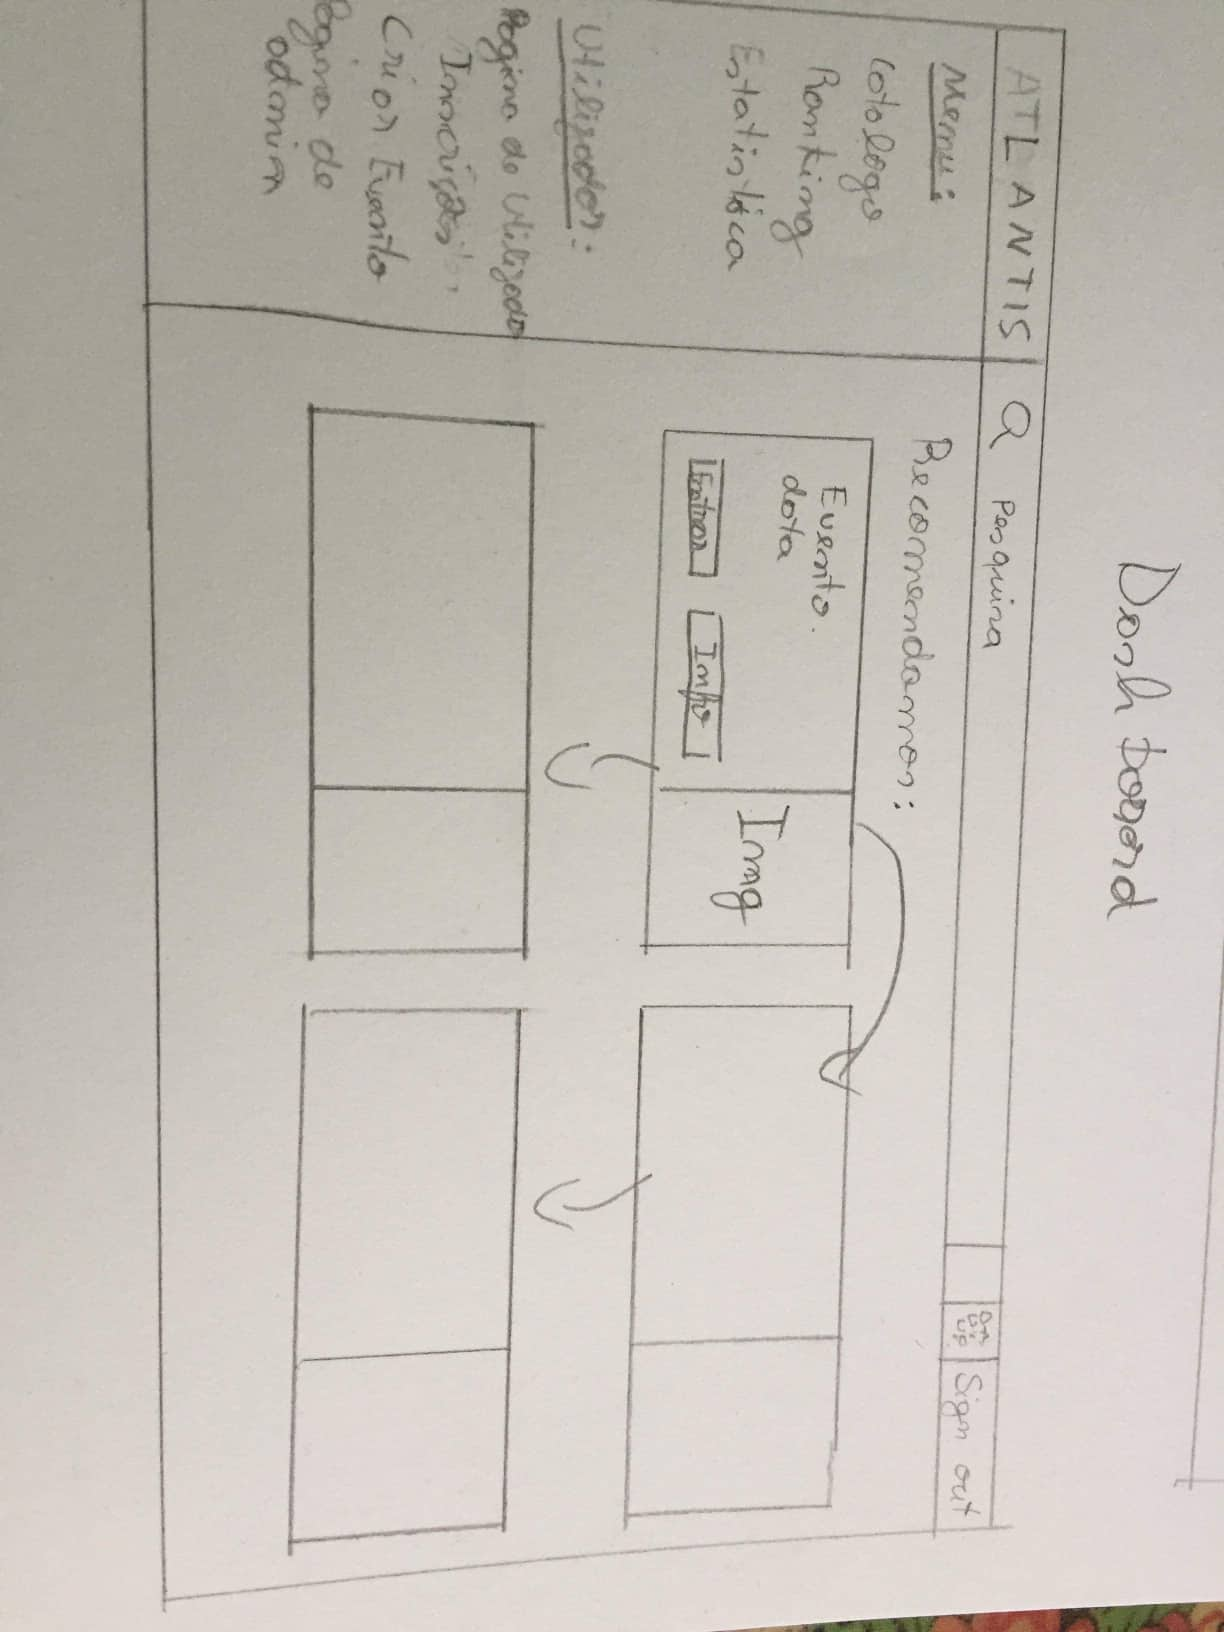 Dashboard
ATLANTIS
Pesquisa
Sign out
Menu:
Catalogo
Ranking
Estatistica
Utilizador:
Pagina do Utilizador
Inscrições
Criar Evento
Pagina de
admin
Recomendamos:
Evento.
data
Entrar
Info
Img